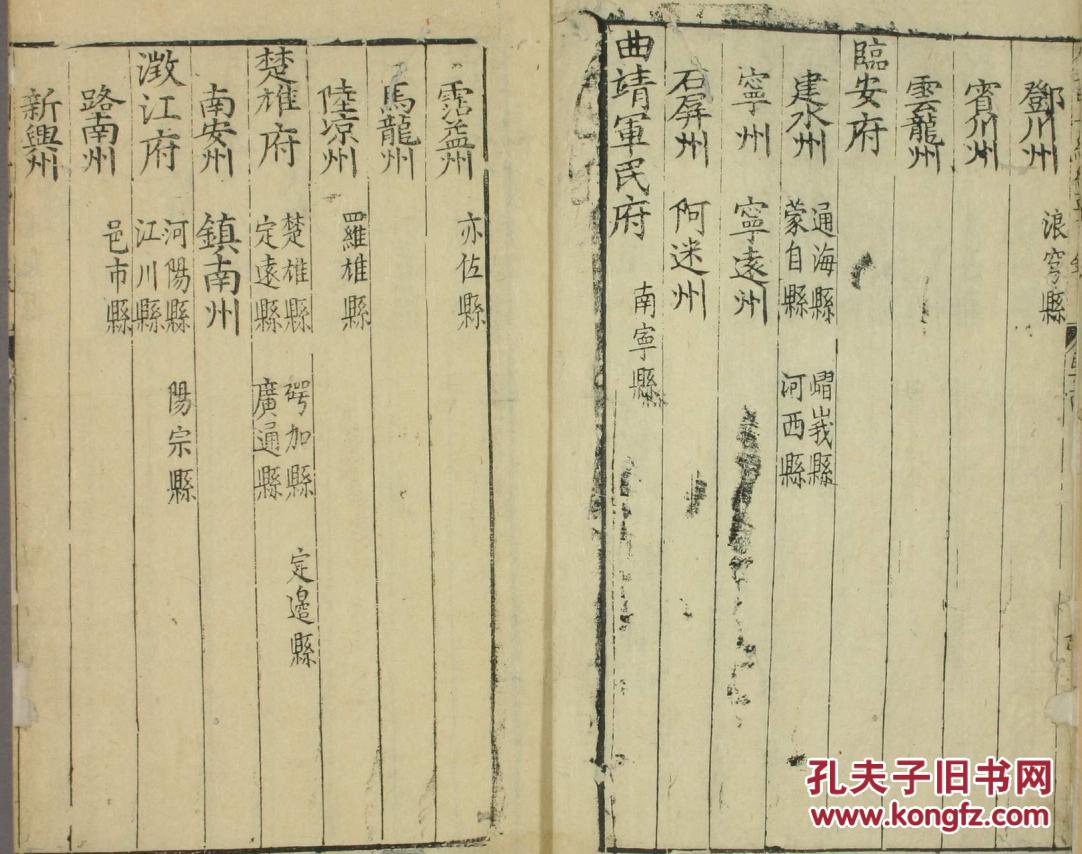 鄧川州 浪穹縣
賓川州
雲龍州
臨安府
建水州 通海縣 蒙自縣 嶍峩縣 河西縣
寧州 寧遠州
石屏州 阿迷州
曲靖軍民府 南寧縣
霑益州 亦佐縣
馬龍州
陸凉州 羅雄縣
楚雄府 楚雄縣 定遠縣 碍加縣 廣通縣 定邉縣
南安州 鎮南州
澂江府 河陽縣 江川縣 陽宗縣
路南州 邑市縣
新興州
孔夫子旧书网
www.kongfz.com